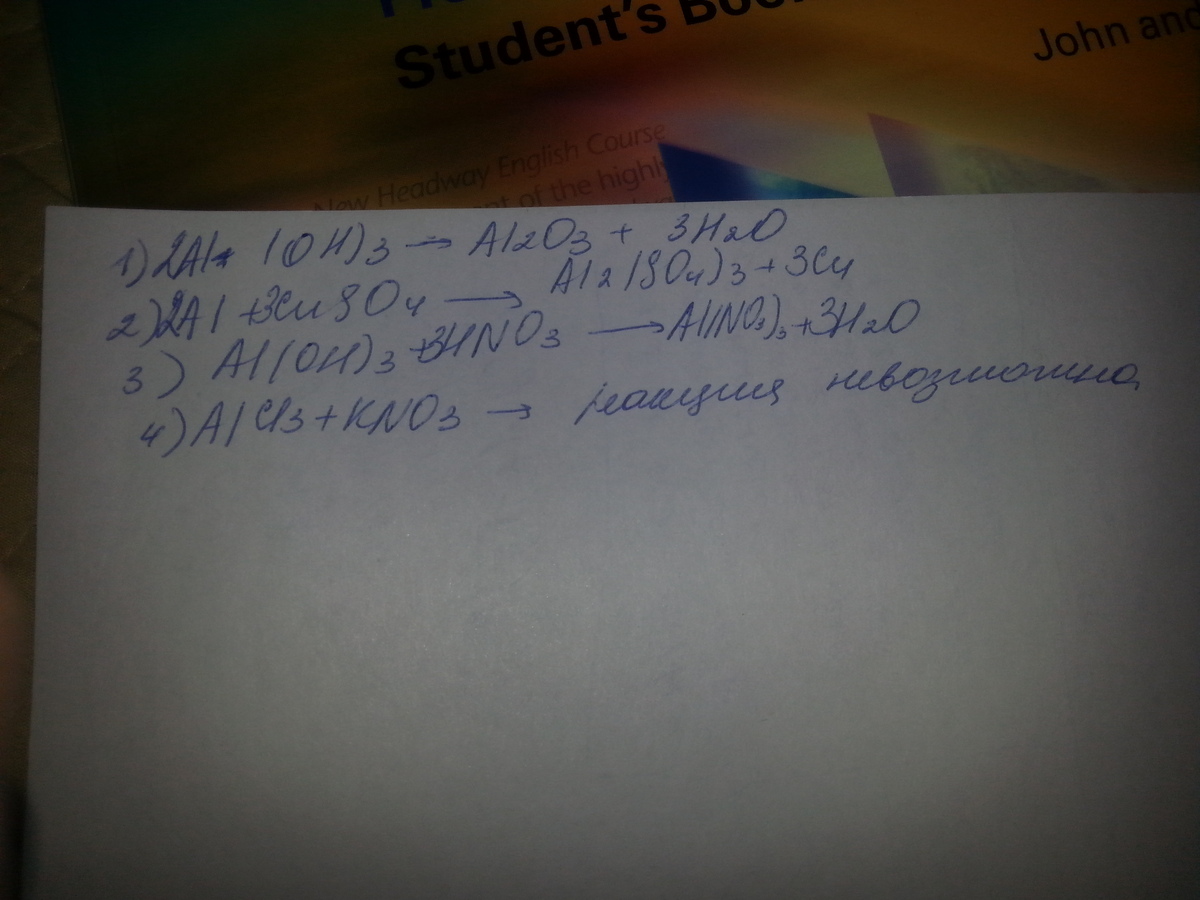 Student's Boo
John and
New Headway English Course
pment of the highly
1) 2Al (OH)3 → Al2O3 + 3H2O
2) 2Al + 3CuSO4 → Al2(SO4)3 + 3Cu
3) Al(OH)3 + 3HNO3 → Al(NO3)3 + 3H2O
4) AlCl3 + KNO3 → реакция невозможна